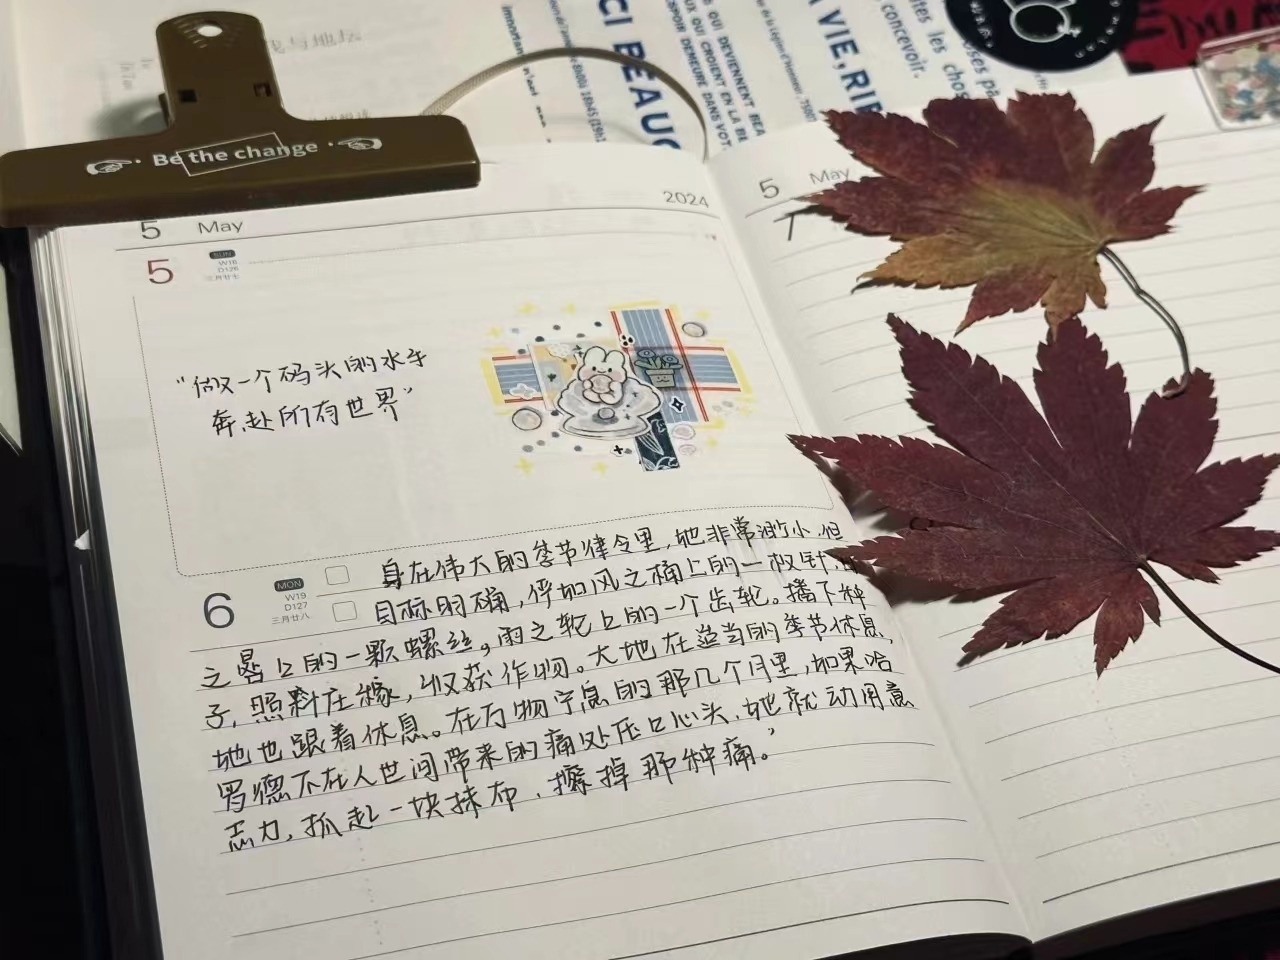 我与地坛
Be the change
CI BEAUC
QUI DEVIENNENT BEA
UX QUI CROIENT EN LA BE
ESPOIR DEMEURE DANS VOT
A VIE, RIE
tes les chos
concevoir.
oses pa
5 May
2024
5
SUN
W18
D126
三月廿七
"做一个码头的水手
奔赴所有世界"
6
MON
W19
D127
三月廿八
身在伟大的季节律令里,她非常渺小,但
目标明确,俘如风之桶上的一枚针,
之暑上的一颗螺丝。雨之轮上的一个齿轮。播下种
子,照料庄稼,收获作物。大地在适当的季节休息,
她也跟着休息。在万物宁息的那几个月里,如果哈
罗德不在人世间带来的痛处压口心头,她就动用意
志力,抓起一块抹布,擦掉那种痛。"
5 May
7